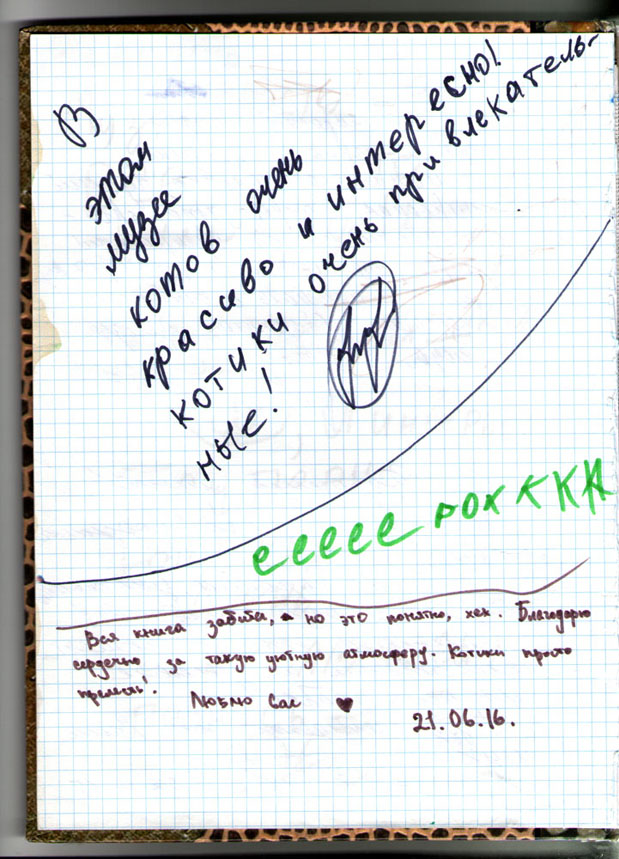 В
этом
музее
котов очень
красиво и интересно!
котики очень привлекатель-
ные!
еееее РОККККК
Вся книга забита, но это понятно, хех. Благодарю
сердечно за такую уютную атмосферу. Котики просто
прелесть!
Люблю Вас ♥
21.06.16.